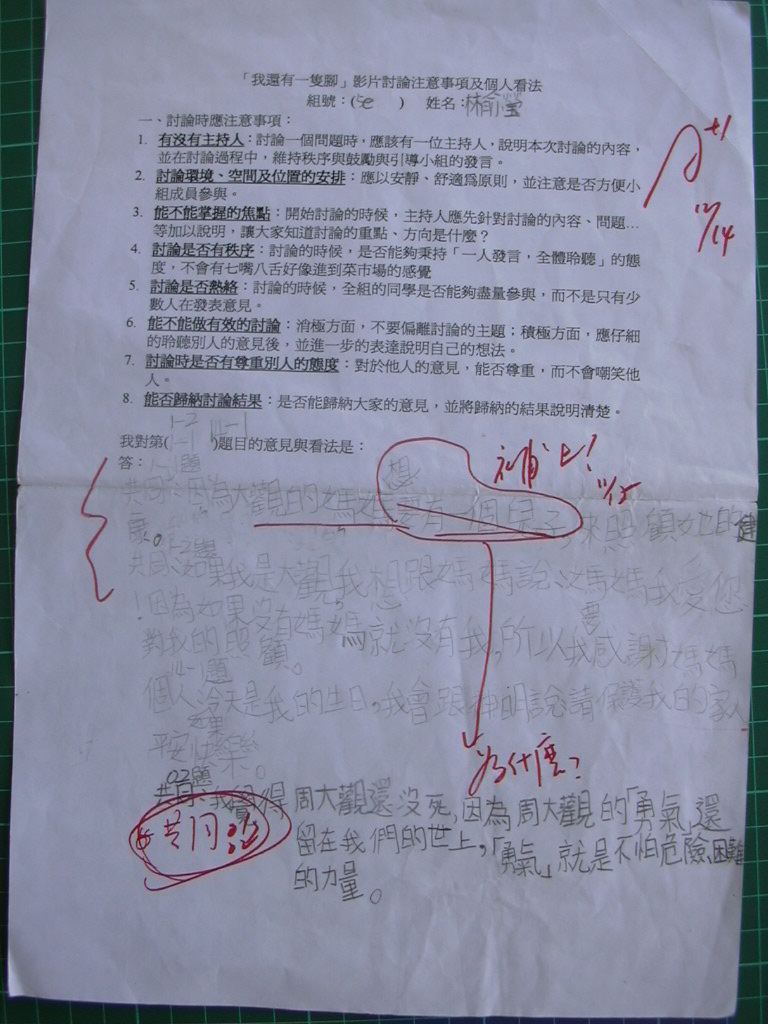 「我還有一隻腳」影片討論注意事項及個人看法
組號：(5e ) 姓名：林俞瑩
一、討論時應注意事項：
1. 有沒有主持人：討論一個問題時，應該有一位主持人，說明本次討論的內容，
並在討論過程中，維持秩序與鼓勵與引導小組的發言。
2. 討論環境、空間及位置的安排：應以安靜、舒適為原則，並注意是否方便小
組成員參與。
3. 能不能掌握的焦點：開始討論的時候，主持人應先針對討論的內容、問題…
等加以說明，讓大家知道討論的重點、方向是什麼？
4. 討論是否有秩序：討論的時候，是否能夠秉持「一人發言，全體聆聽」的態
度，不會有七嘴八舌好像進到菜市場的感覺
5. 討論是否熱絡：討論的時候，全組的同學是否能夠盡量參與，而不是只有少
數人在發表意見。
6. 能不能做有效的討論：消極方面，不要偏離討論的主題；積極方面，應仔細
的聆聽別人的意見後，並進一步的表達說明自己的想法。
7. 討論時是否有尊重別人的態度：對於他人的意見，能否尊重，而不會嘲笑他
人。
8. 能否歸納討論結果：是否能歸納大家的意見，並將歸納的結果說明清楚。
A+1
12/14
1-2
我對第(1-1 四-1 )題目的意見與看法是：
答：
補上！
11/15
1-1題
共同：因為大觀的媽媽想要有一個兒子來照顧她的健
康。
1-2題
共同：如果我是大觀我想跟媽媽說：媽媽我愛您
！因為如果沒有媽媽就沒有我，所以我要感謝媽媽
對我的照顧。
四-1題
個人：今天是我的生日，我會跟神明說請保護我的家人
平安快樂。
為什麼？
共同：我覺得周大觀還沒死，因為周大觀的「勇氣」還
留在我們的世上，「勇氣」就是不怕危險、困難
的力量。
共同